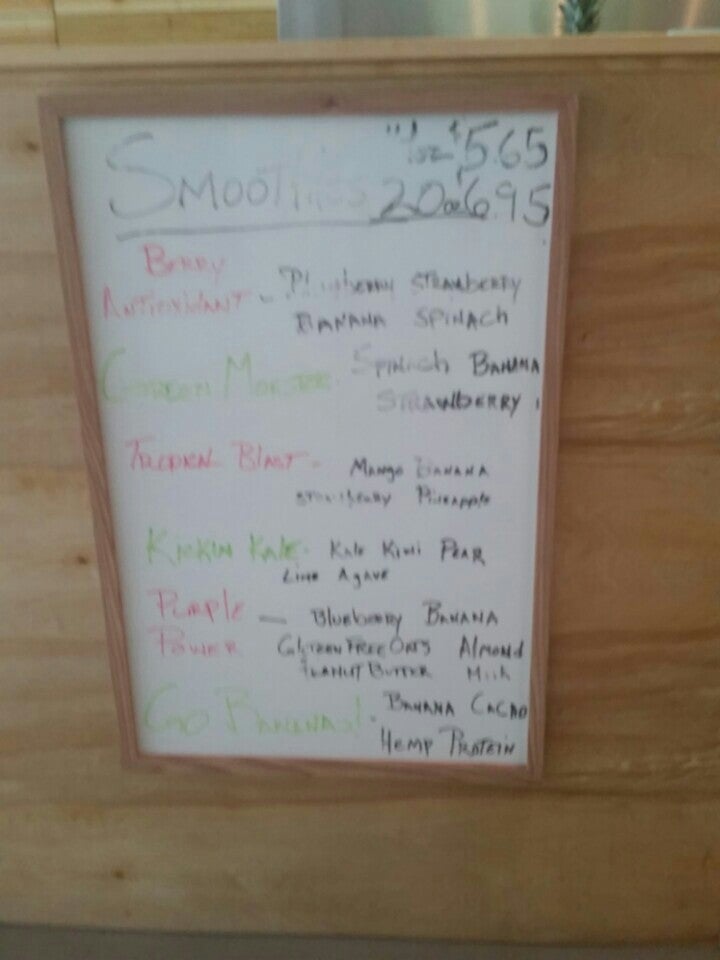 oz $5.65
SMOOTHIES 20oz $6.95
BERRY
ANTIOXIDANT - STRAWBERRY
BANANA SPINACH
GREEN MONSTER - SPINACH BANANA
STRAWBERRY
BLAST - MANGO BANANA
STRAWBERRY PINEAPPLE
KICKIN KALE - KALE KIWI PEAR
LIME AGAVE
PURPLE — BLUEBERRY BANANA
POWER GLUTEN FREE OATS ALMOND
PEANUT BUTTER MILK
GO BANANAS! - BANANA CACAO
HEMP PROTEIN